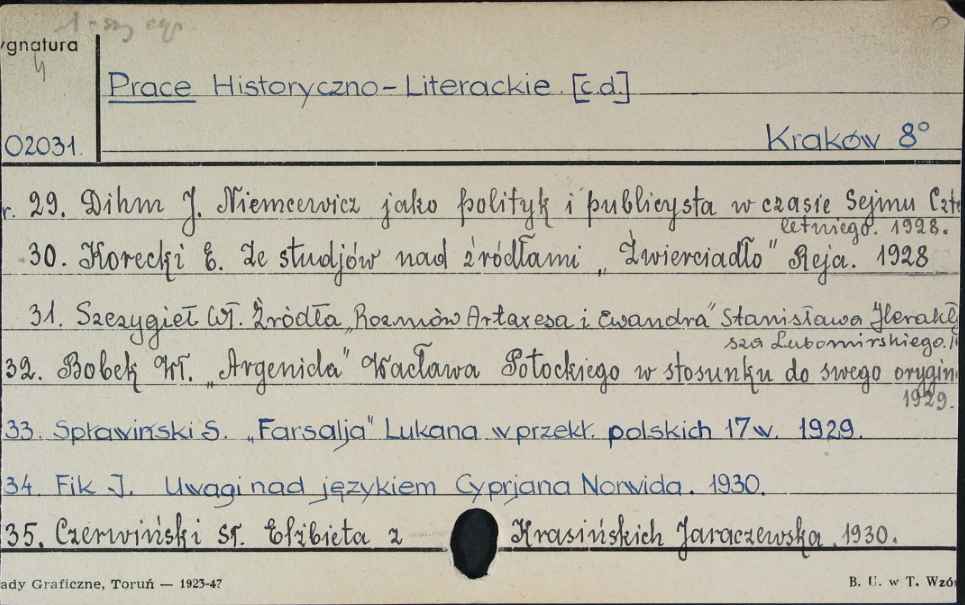 1-szy egz.
ygnatura
4
Prace Historyczno-Literackie. [c.d.]
02031.
Kraków 8°
r. 29. Dihm J. Niemcewicz jako polityk i publicysta w czasie Sejmu Czte
letniego. 1928.
30. Korecki E. Ze studjów nad źródłami „Zwierciadło" Reja. 1928
31. Szczygieł Wł. Źródła „Rozmów Artaxesa i Ewandra" Stanisława Herakl
sza Lubomirskiego.
32. Bobek Wł. „Argenida" Wacława Potockiego w stosunku do swego orygin
1929.
33. Spławinski S. „Farsalja" Lukana w przekł. polskich 17 w. 1929.
34. Fik J. Uwagi nad językiem Cyprjana Norwida. 1930.
35. Czerwiński St. Elżbieta z Krasińskich Jaraczewska. 1930.
ady Graficzne, Toruń — 1923-47
B. U. w T. Wzó